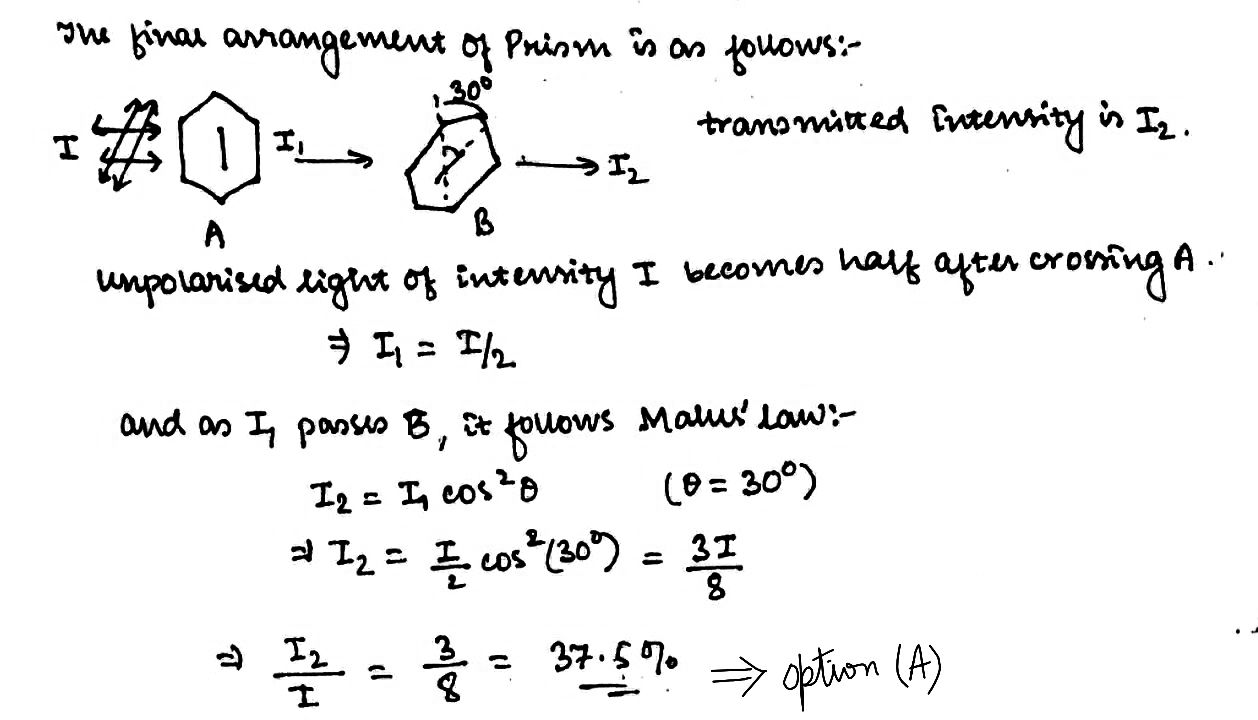 The final arrangement of Prism is as follows:-
30°
transmitted intensity is I₂.
I I₁ I₂
A B
unpolarised light of intensity I becomes half after crossing A.
⇒ I₁ = I/2
and as I₁ passes B, it follows Malus' Law:-
I₂ = I₁ cos²θ (θ = 30°)
⇒ I₂ = I/2 cos²(30°) = 3I/8
⇒ I₂/I = 3/8 = 37.5% ⇒ option (A)